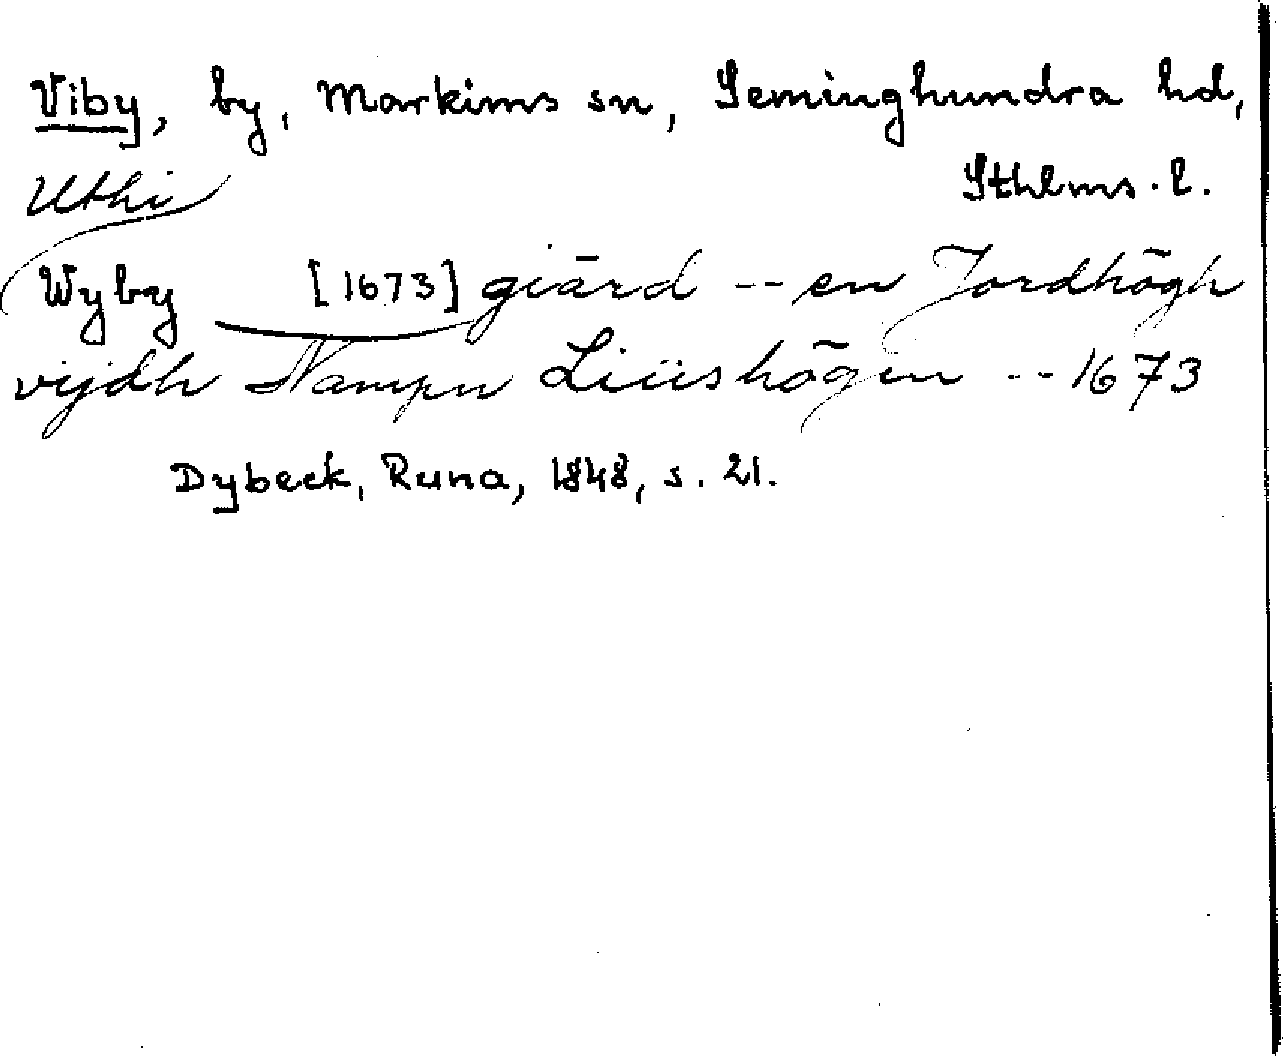 Viby, by, Markims sn, Seminghundra hd,
Sthlms. l.
Uthi
Wyby [1673] giärd -- en Jordhögh
vijdh Nampn Liüshögen -- 1673
Dybeck, Runa, 1848, s. 21.